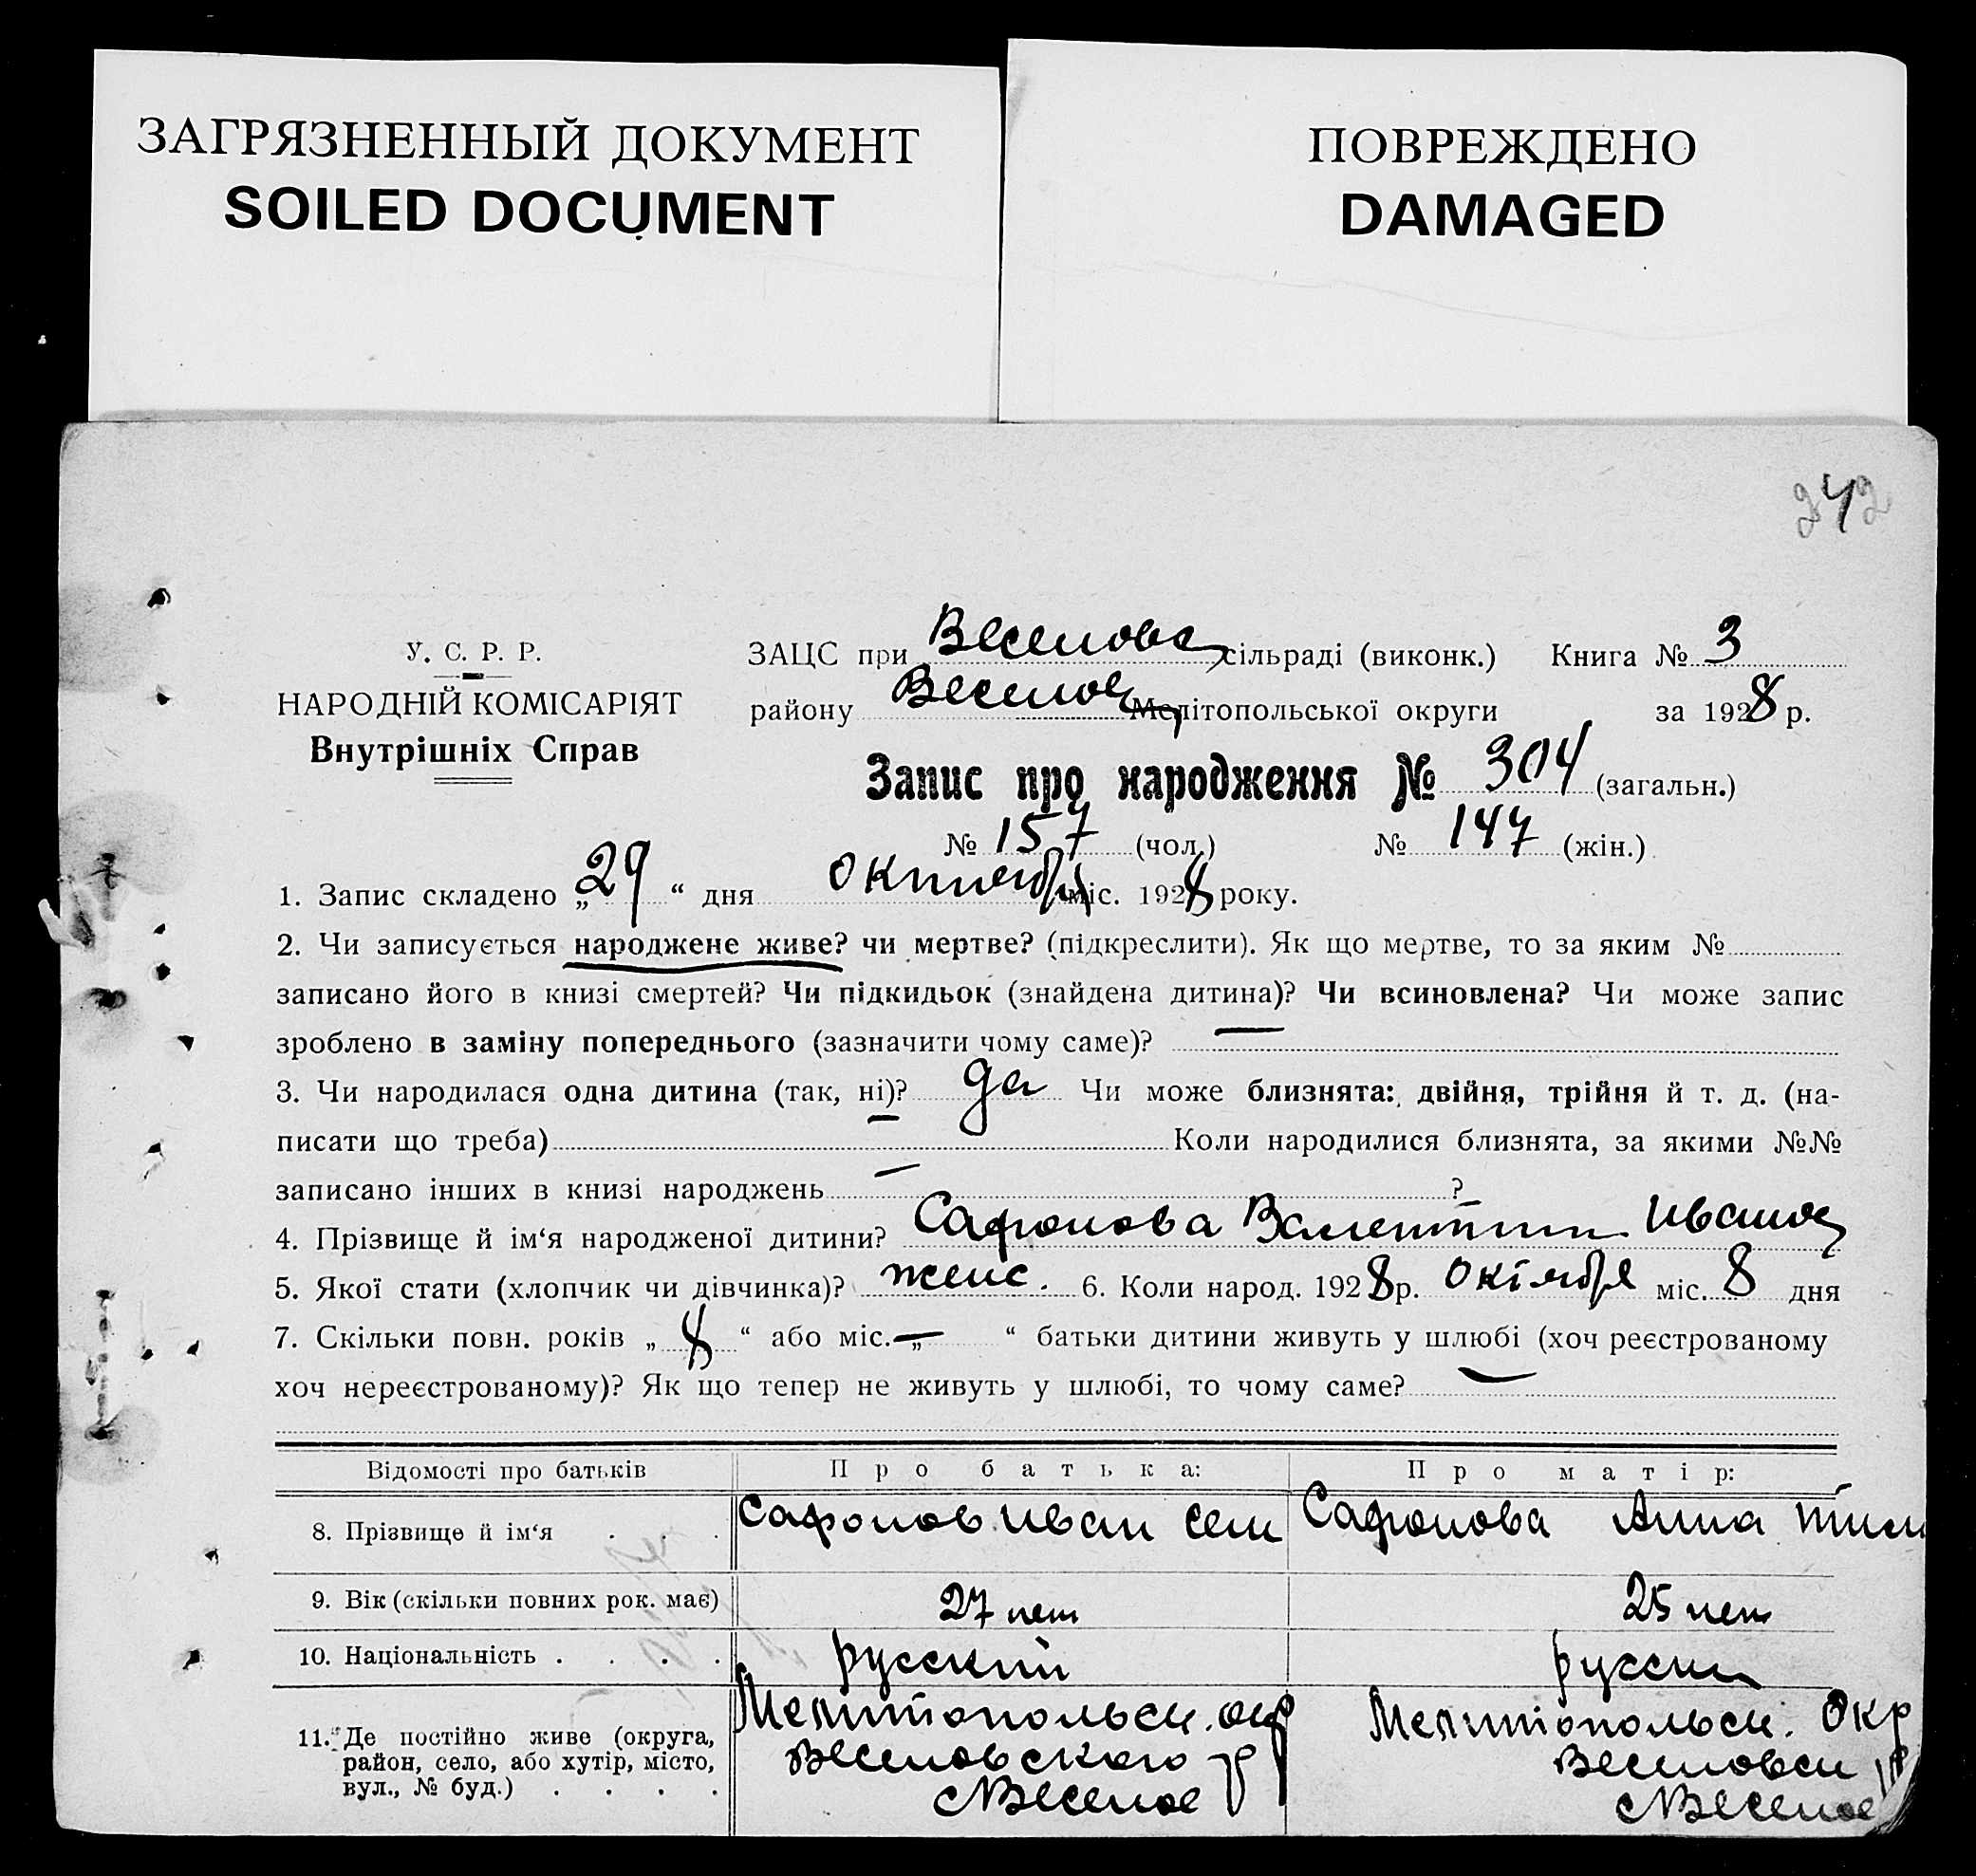 ЗАГРЯЗНЕННЫЙ ДОКУМЕНТ
SOILED DOCUMENT
ПОВРЕЖДЕНО
DAMAGED
242
У. С. Р. Р.
НАРОДНІЙ КОМІСАРІЯТ
Внутрішніх Справ
ЗАЦС при Веселовс сільраді (виконк.) Книга № 3
району Веселов Мелітопольської округи за 1928 р.
Запис про народження № 304 (загальн.)
№ 157 (чол.) № 147 (жін.)
1. Запис складено „29“ дня Октября міс. 1928 року.
2. Чи записується народжене живе? чи мертве? (підкреслити). Як що мертве, то за яким №
записано його в книзі смертей? Чи підкидьок (знайдена дитина)? Чи всиновлена? Чи може запис
зроблено в заміну попереднього (зазначити чому саме)? —
3. Чи народилася одна дитина (так, ні)? да Чи може близнята: двійня, трійня й т. д. (на-
писати що треба) — Коли народилися близнята, за якими №№
записано інших в книзі народжень — ?
4. Прізвище й ім‘я народженої дитини? Сафонова Валентин Иванов
5. Якої стати (хлопчик чи дівчинка)? женс. 6. Коли народ. 1928 р. Октября міс. 8 дня
7. Скільки повн. років „8“ або міс. „—“ батьки дитини живуть у шлюбі (хоч реєстрованому
хоч нереєстрованому)? Як що тепер не живуть у шлюбі, то чому саме? —
Відомості про батьків Про батька: Про матір:
8. Прізвище й ім‘я . . . Сафонов Иван Сем Сафонова Анна Тим
9. Вік (скільки повних рок. має) 27 лет 25 лет
10. Національність . . . . русский русск
11. Де постійно живе (округа, район, село, або хутір, місто, вул., № буд.) . . . .
Мелитопольск. окр
Веселовского р
с Веселое
Мелитопольск. Окр
Веселовск р
с Веселое